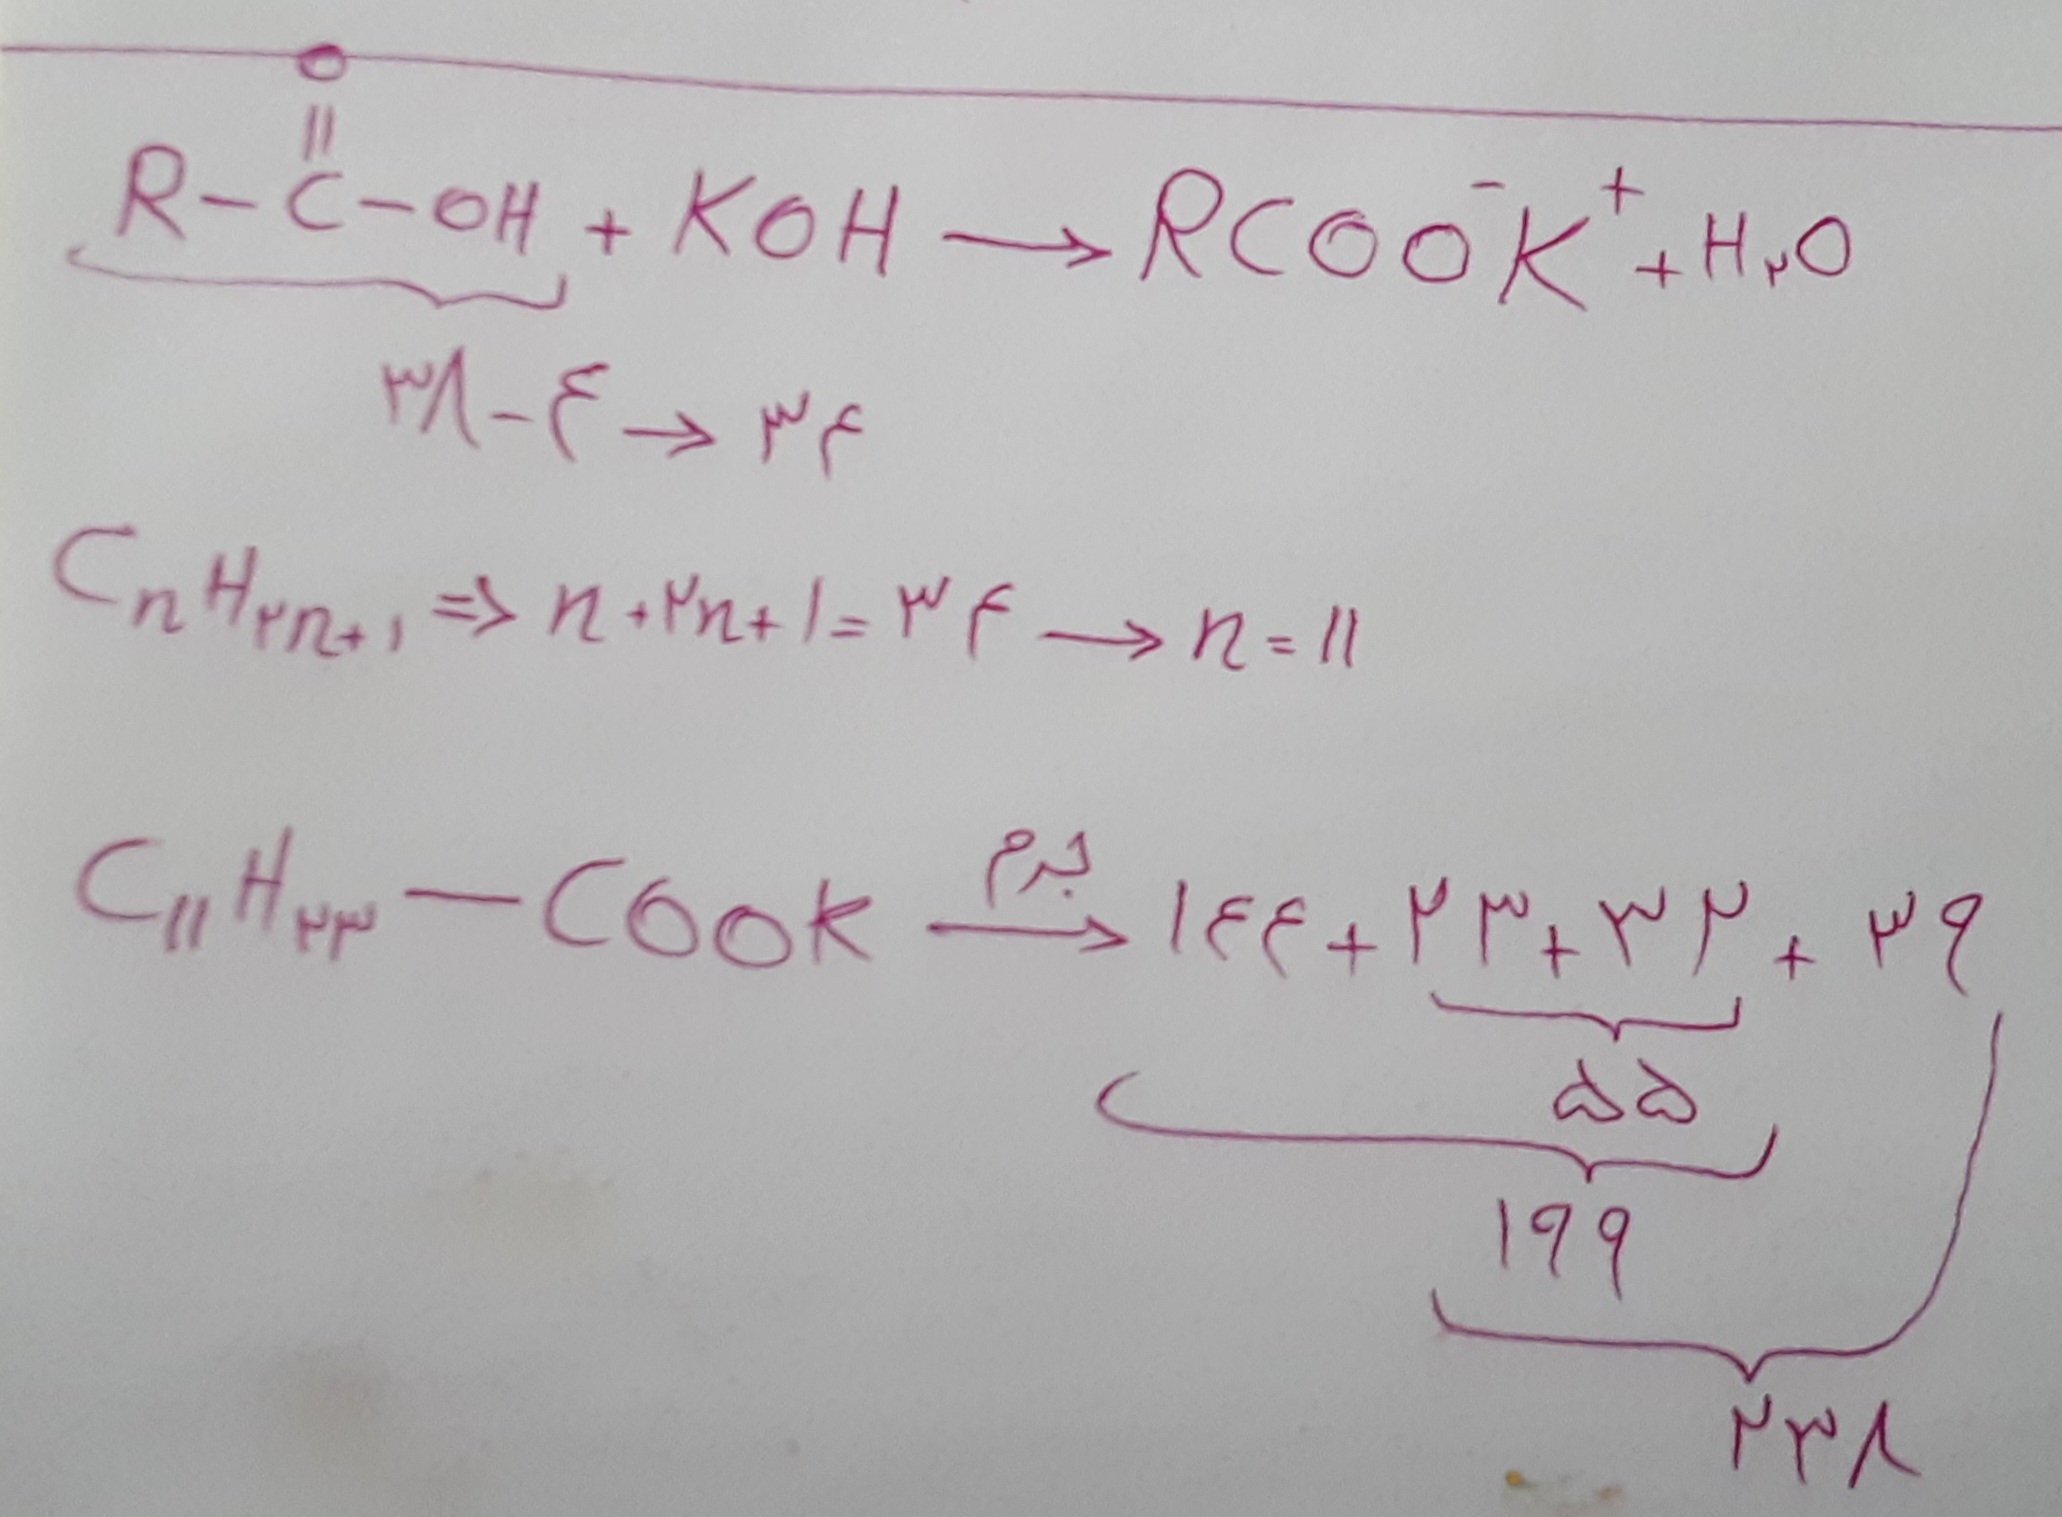 O
||
R-C-OH + KOH → RCOO⁻K⁺ + H₂O
۳۸-۴ → ۳۴
CnH۲n+۱ => n+۲n+۱=۳۴ → n=۱۱
C۱۱H۲۳—COOK جرم → ۱۴۴+۲۳+۳۲+۳۹
۵۵
۱۹۹
۲۳۸